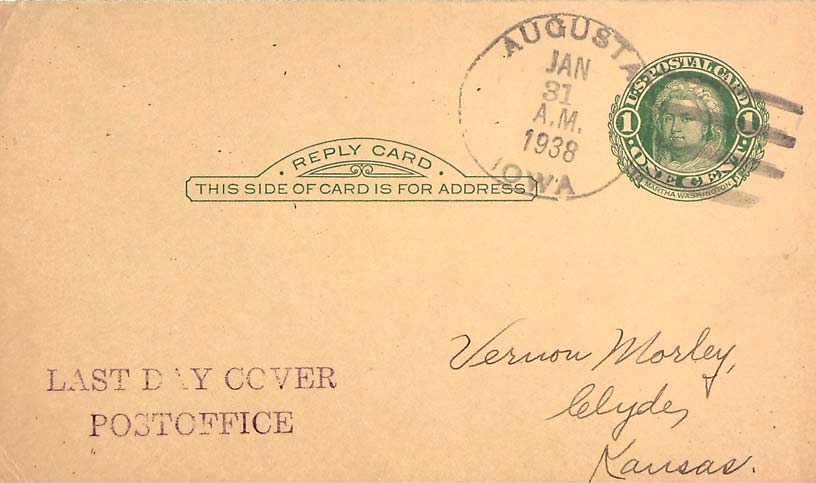 AUGUSTA
JAN
31
A.M.
1938
IOWA
U.S. POSTAL CARD
1 1
ONE CENT
MARTHA WASHINGTON
REPLY CARD
THIS SIDE OF CARD IS FOR ADDRESS
Vernon Morley,
Clyde,
Kansas.
LAST DAY COVER
POSTOFFICE